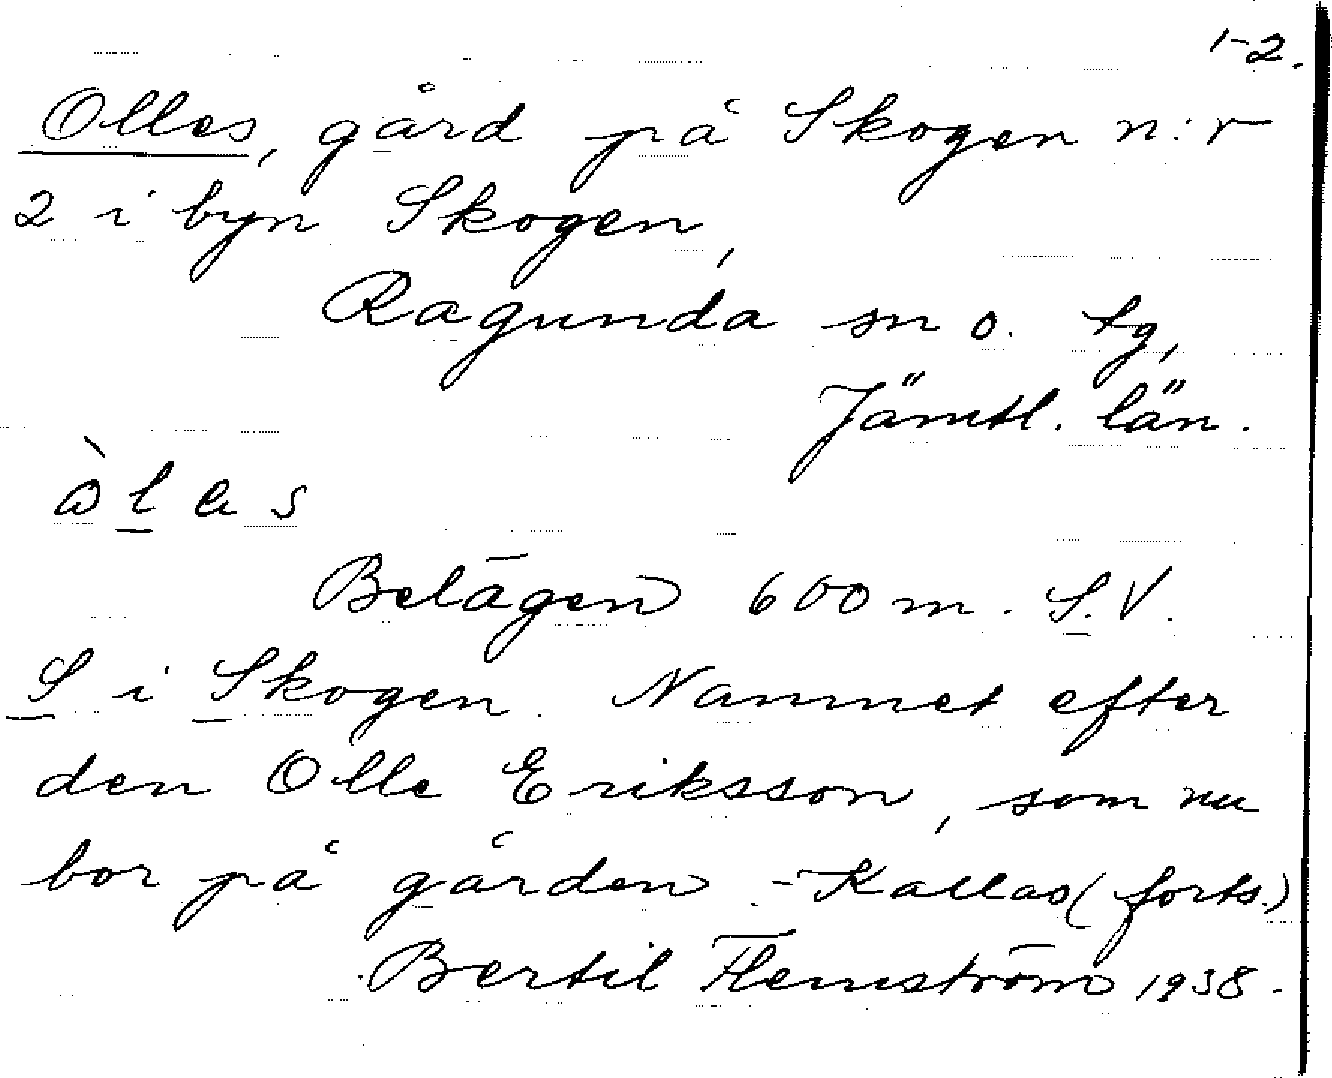 1-2.
Olles, gård på Skogen n:r
2 i byn Skogen,
Ragunda sn o. tg,
Jämtl. län.
Belägen 600 m. S.V.
S i Skogen. Namnet efter
den Olle Eriksson, som nu
bor på gården - Kallas (forts.)
Bertil Flemström 1938.